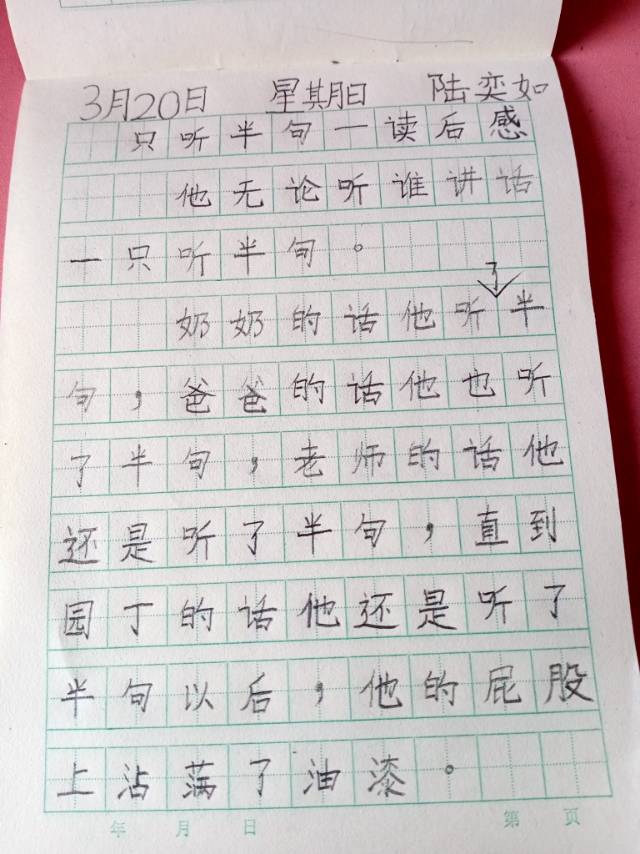 3月20日 星期日 陆奕如
只听半句一读后感
他无论听谁讲话
一只听半句。
了
奶奶的话他听半
句，爸爸的话他也听
了半句，老师的话他
还是听了半句，直到
园丁的话他还是听了
半句以后，他的屁股
上沾满了油漆。
年 月 日 第 页